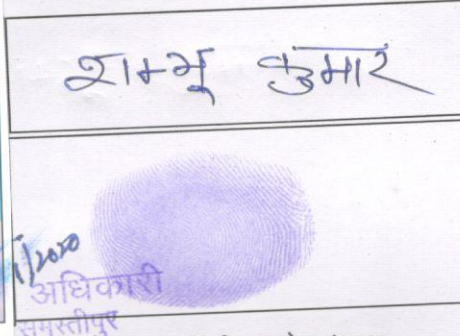 शम्भू कुमार
1/2020
अधिकारी
समस्तीपुर